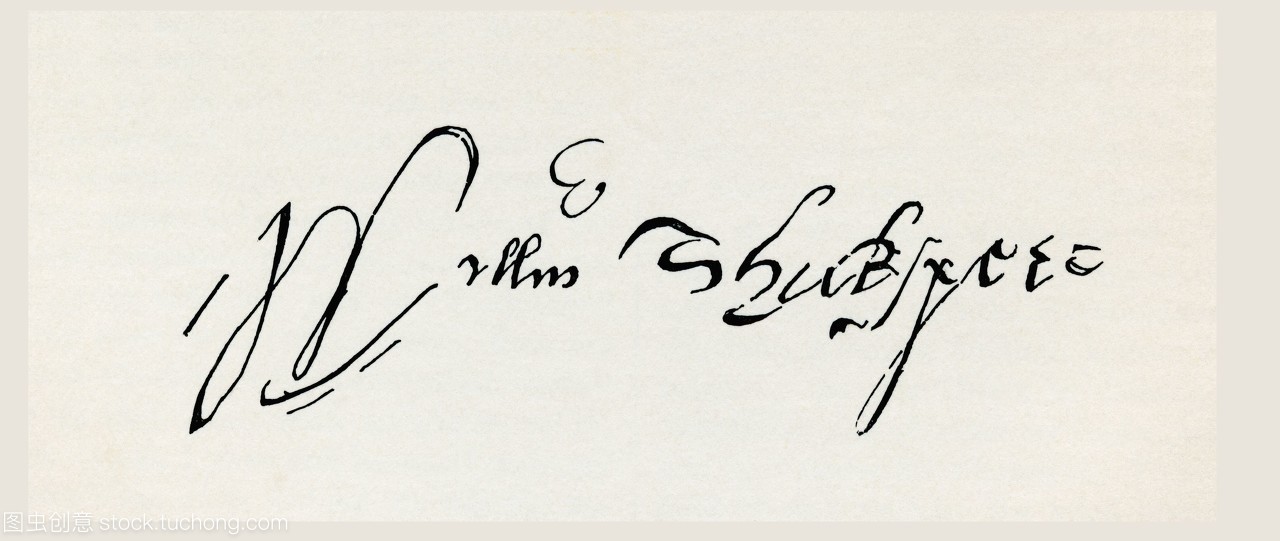 Willm Shakspere
图虫创意 stock.tuchong.com